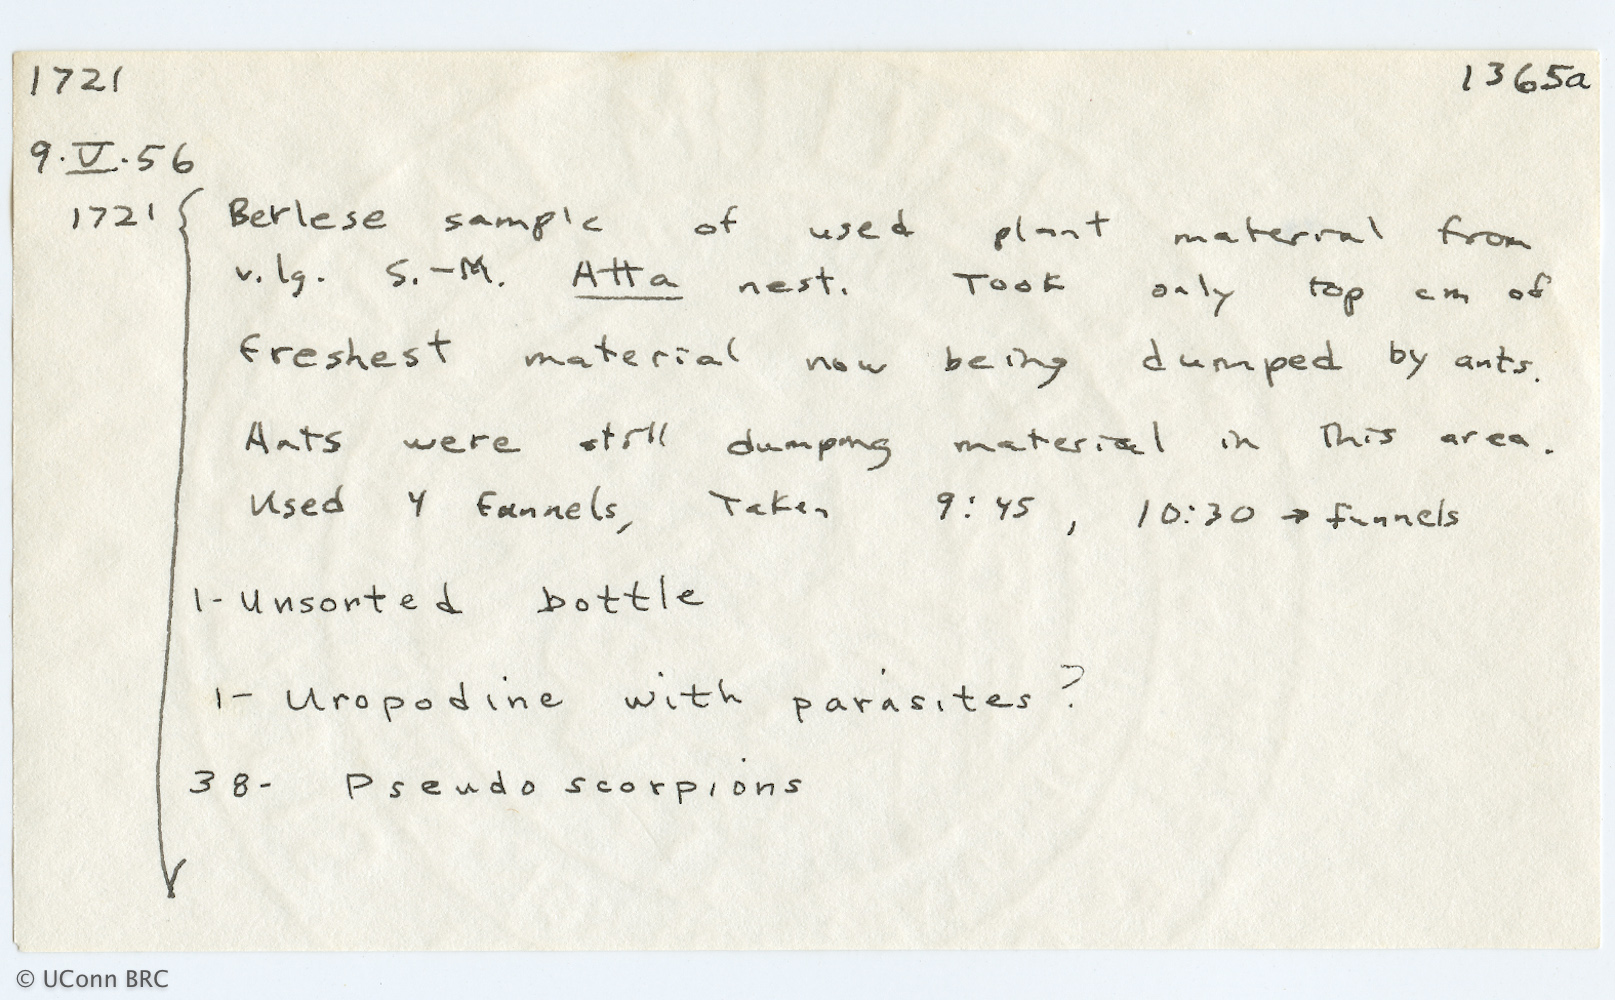 1721 1365a
9.V.56
1721 { Berlese sample of used plant material from
v. lg. S.-M. Atta nest. Took only top cm of
freshest material now being dumped by ants.
Ants were still dumping material in this area.
Used 4 funnels, Taken 9:45, 10:30 → funnels
1- Unsorted bottle
1- Uropodine with parasites?
38- Pseudoscorpions
© UConn BRC